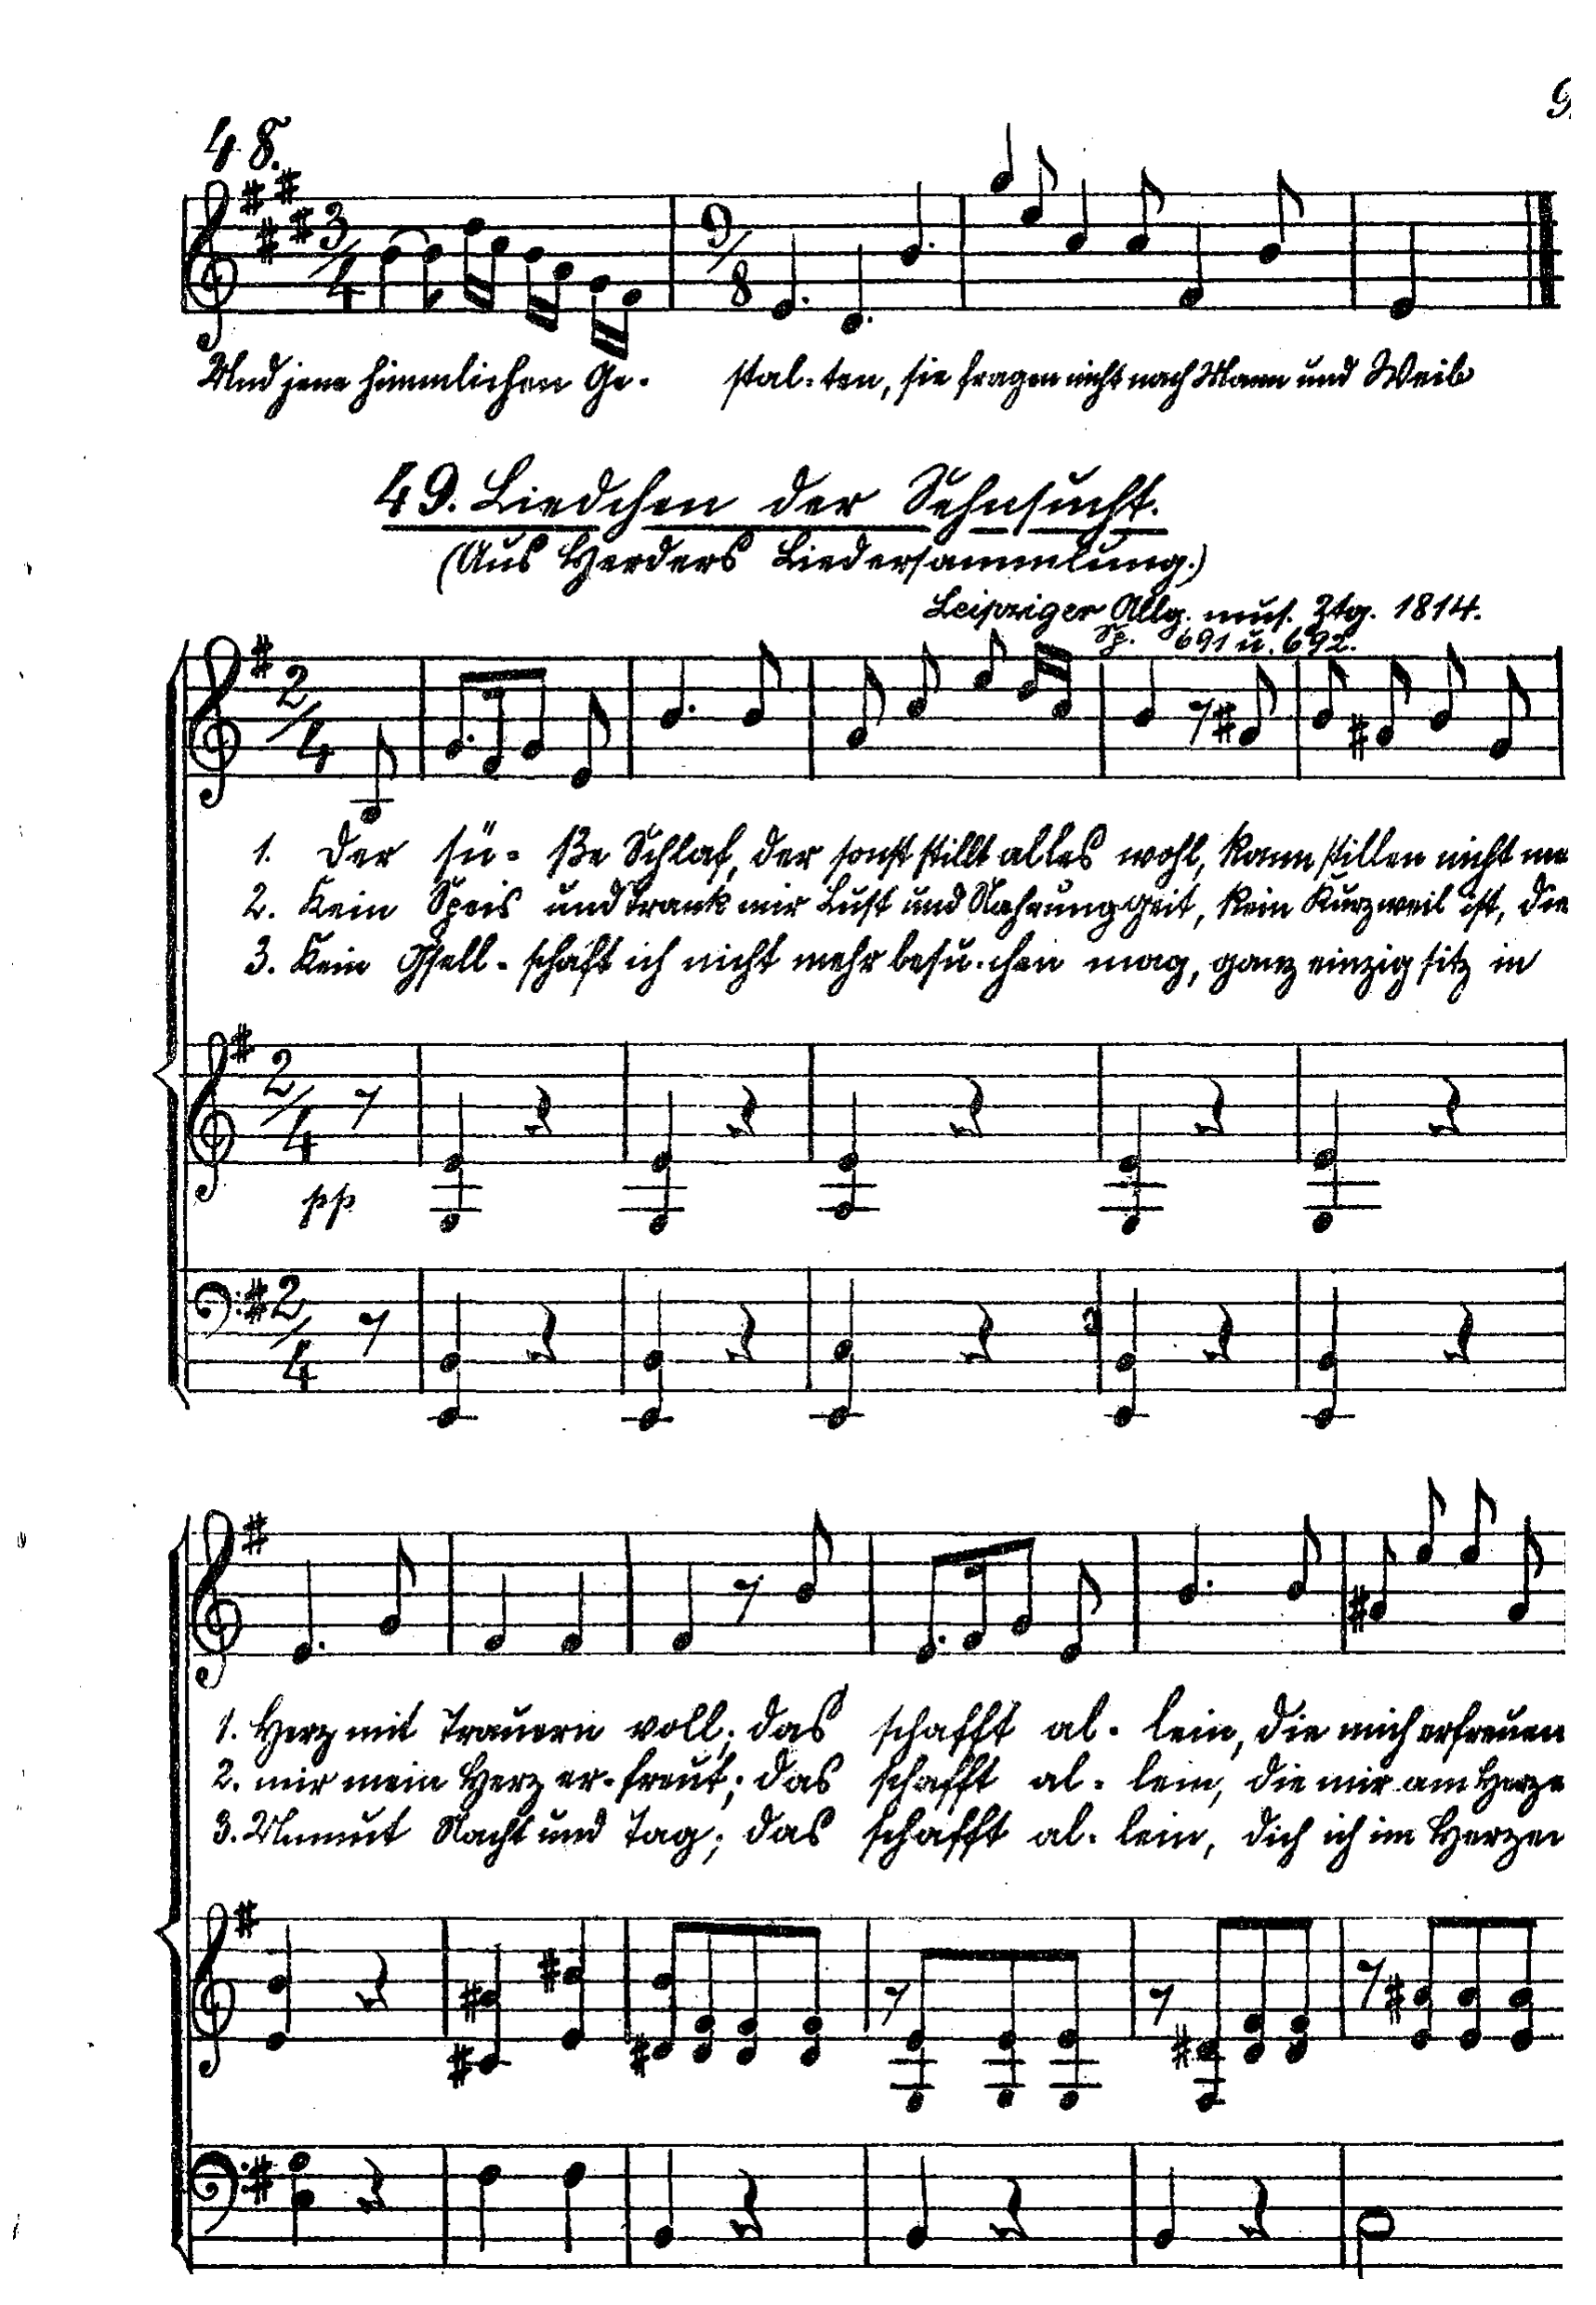 48.
3/4 9/8
Und jene himmlichen Ge- stal-ten, sie fragen nicht nach Mann und Weib
49. Liedchen der Sehnsucht.
(Aus Herders Liedersammlung.)
Leipziger Allg. mus. Ztg. 1814.
Sp. 691 u. 692.
2/4
1. Der sü- ße Schlaf, der sonst stillt alles wohl, kann stillen nicht me
2. Kein Speis und Trank mir Lust und Nahrung geit, kein Kurzweil ist, die
3. Kein Gsell-schaft ich nicht mehr besu-chen mag, ganz einzig sitz in
2/4
pp
2/4
1. Herz mit Trauern voll; das schafft al- lein, die mich erfreuen
2. mir mein Herz er-freut; das schafft al- lein, die mir am Herze
3. Unmut Nacht und Tag; das schafft al- lein, dich ich im Herzen